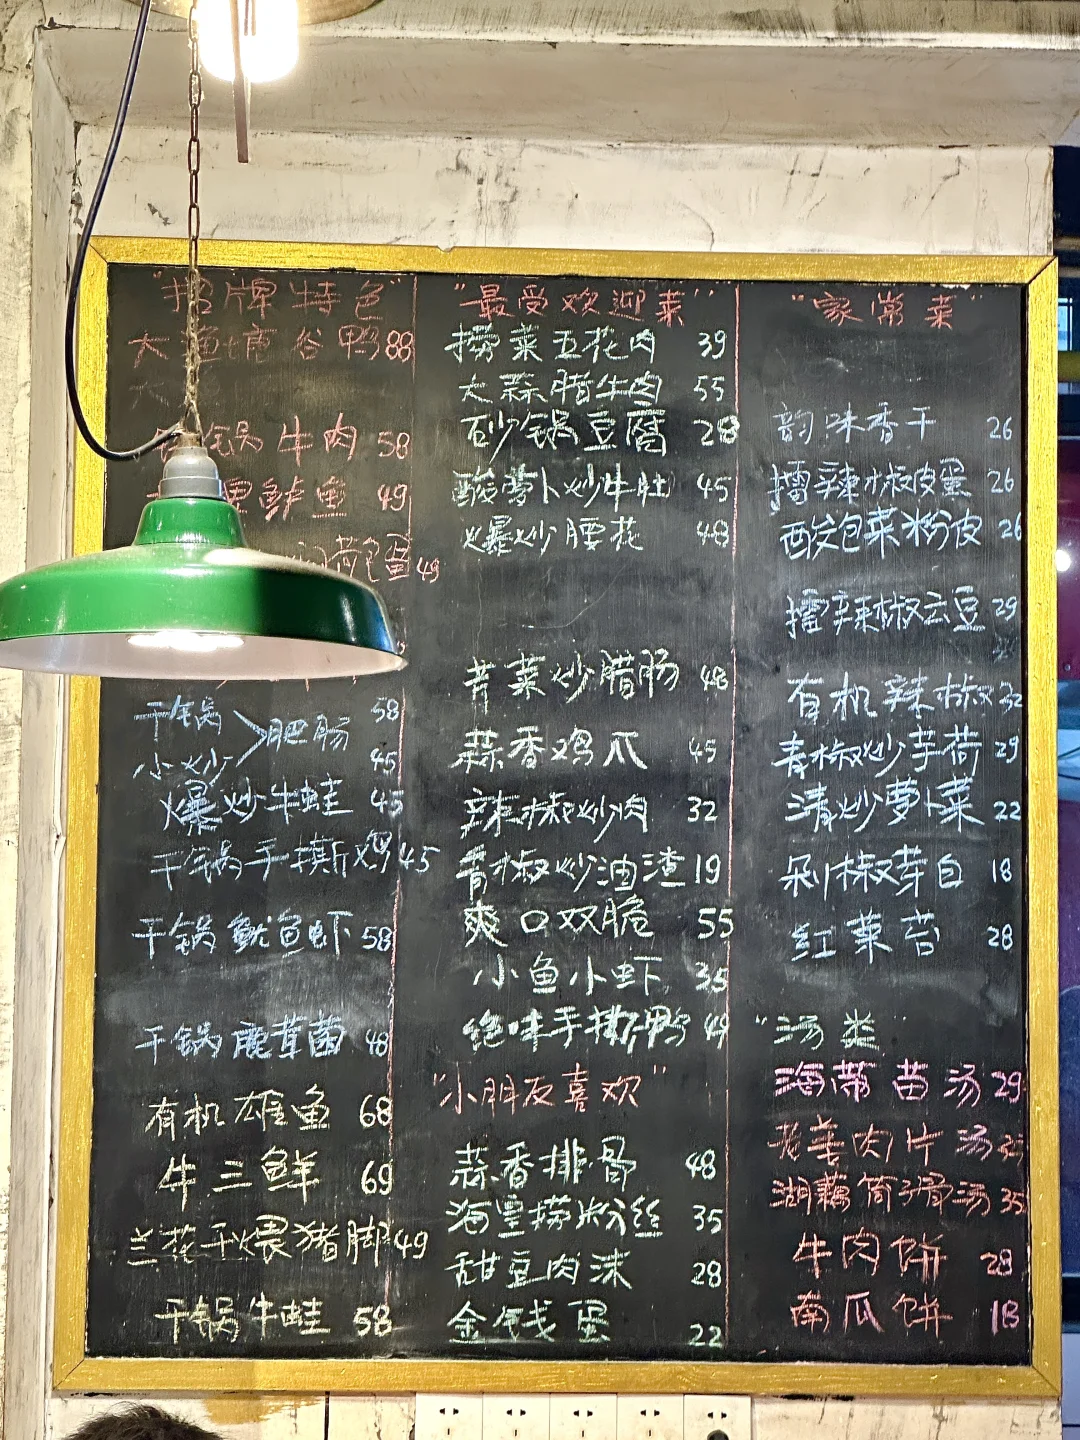 "招牌特色"
大鱼塘谷鸭 88
锅牛肉 58
里鲈鱼 49
荷包蛋 49
干锅 58
小炒 肥肠 45
爆炒牛蛙 45
干锅手撕鸡 45
干锅鱿鱼虾 58
干锅鹿茸菌 48
有机雄鱼 68
牛三鲜 69
兰花干煨猪脚 49
干锅牛蛙 58
"最受欢迎菜"
捞菜五花肉 39
大蒜腊牛肉 55
砂锅豆腐 28
酸萝卜炒牛肚 45
爆炒腰花 48
菁菜炒腊肠 48
蒜香鸡爪 45
辣椒炒肉 32
青椒炒油渣 19
爽口双脆 55
小鱼小虾 35
绝味手撕鸭 49
"小朋友喜欢"
蒜香排骨 48
海皇捞粉丝 35
甜豆肉沫 28
金钱蛋 22
"家常菜"
韵味香干 26
擂辣椒皮蛋 26
酸包菜粉皮 26
擂辣椒云豆 29
有机辣椒 32
青椒炒芋荷 29
清炒萝卜菜 22
剁椒芽白 18
红菜苔 28
"汤类"
海带苗汤 29
老姜肉片汤
湖藕筒子骨汤 35
牛肉饼 28
南瓜饼 18